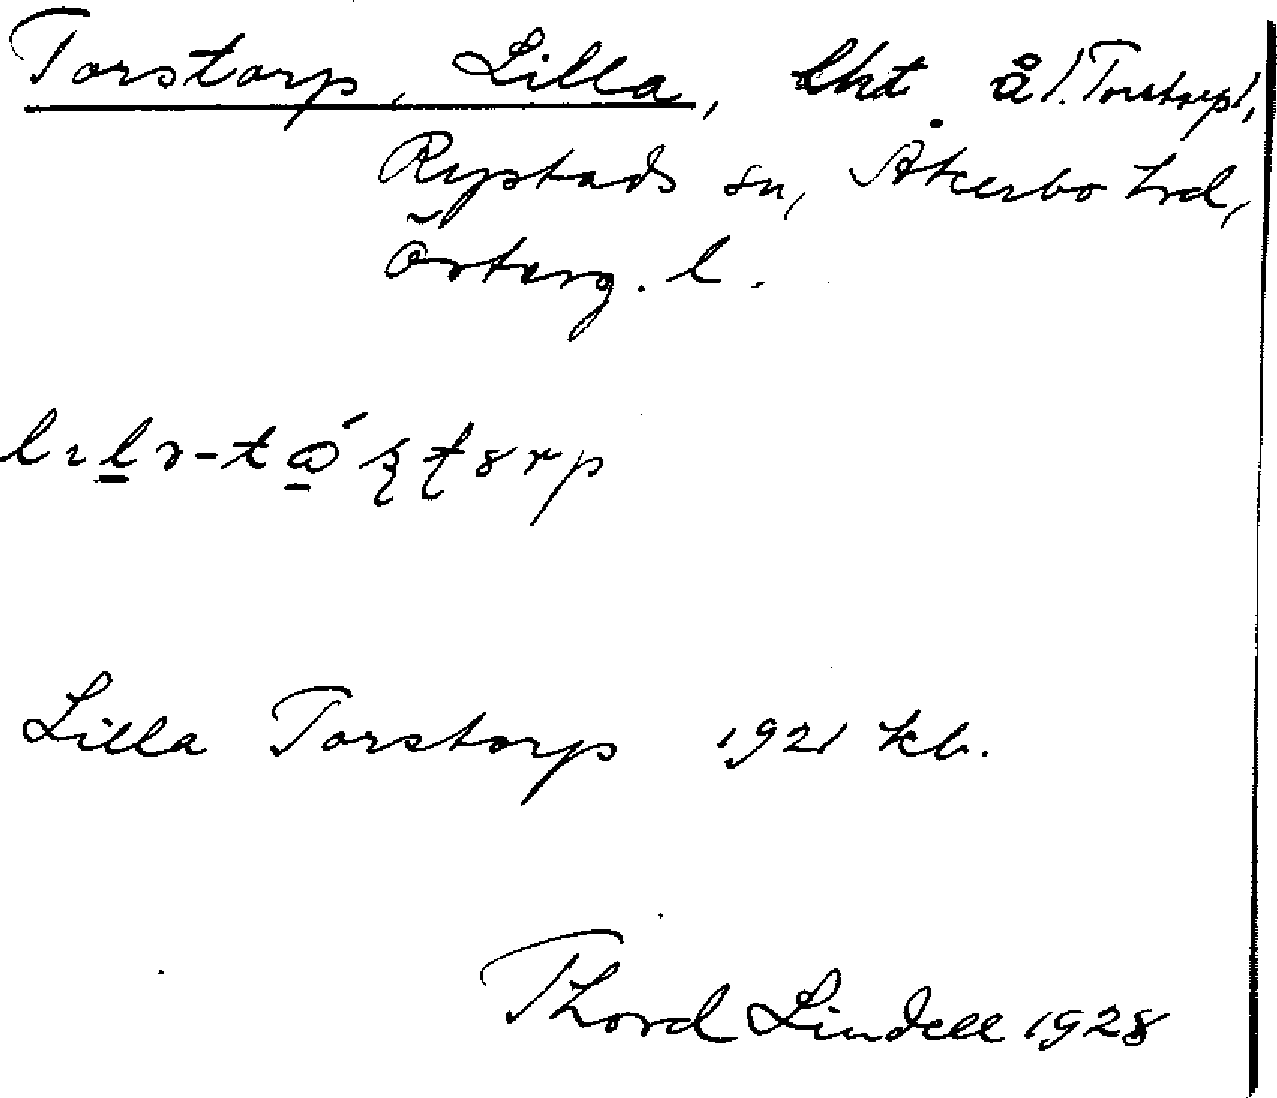 Torstorp, Lilla, lht å /. Torstorp/,
Rystads sn, Åkerbo hrd,
Österg. l.
Lilla Torstorp 1921 kb.
Thord Lindell 1928